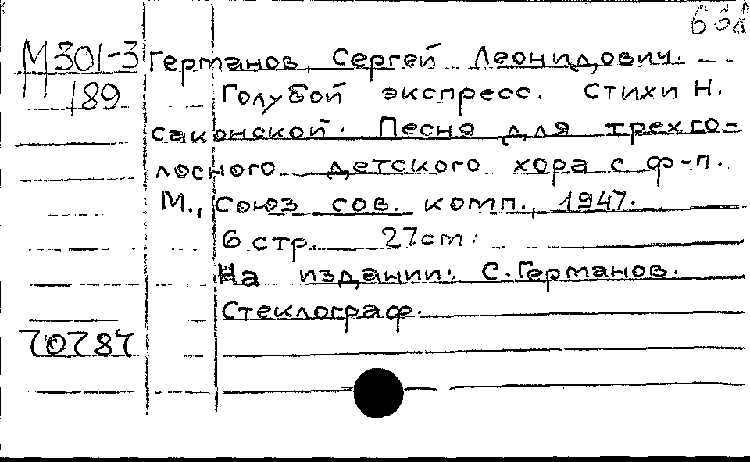 М301-3 Германов, Сергей Леонидович.
/189 Голубой экспресс. Стихи Н.
саконской. Песня для трехго-
лосного детского хора с ф-п.
М., Союз сов. комп., 1947.
6 стр. 27 cm.
На издании: С. Германов.
Стеклограф.
70787